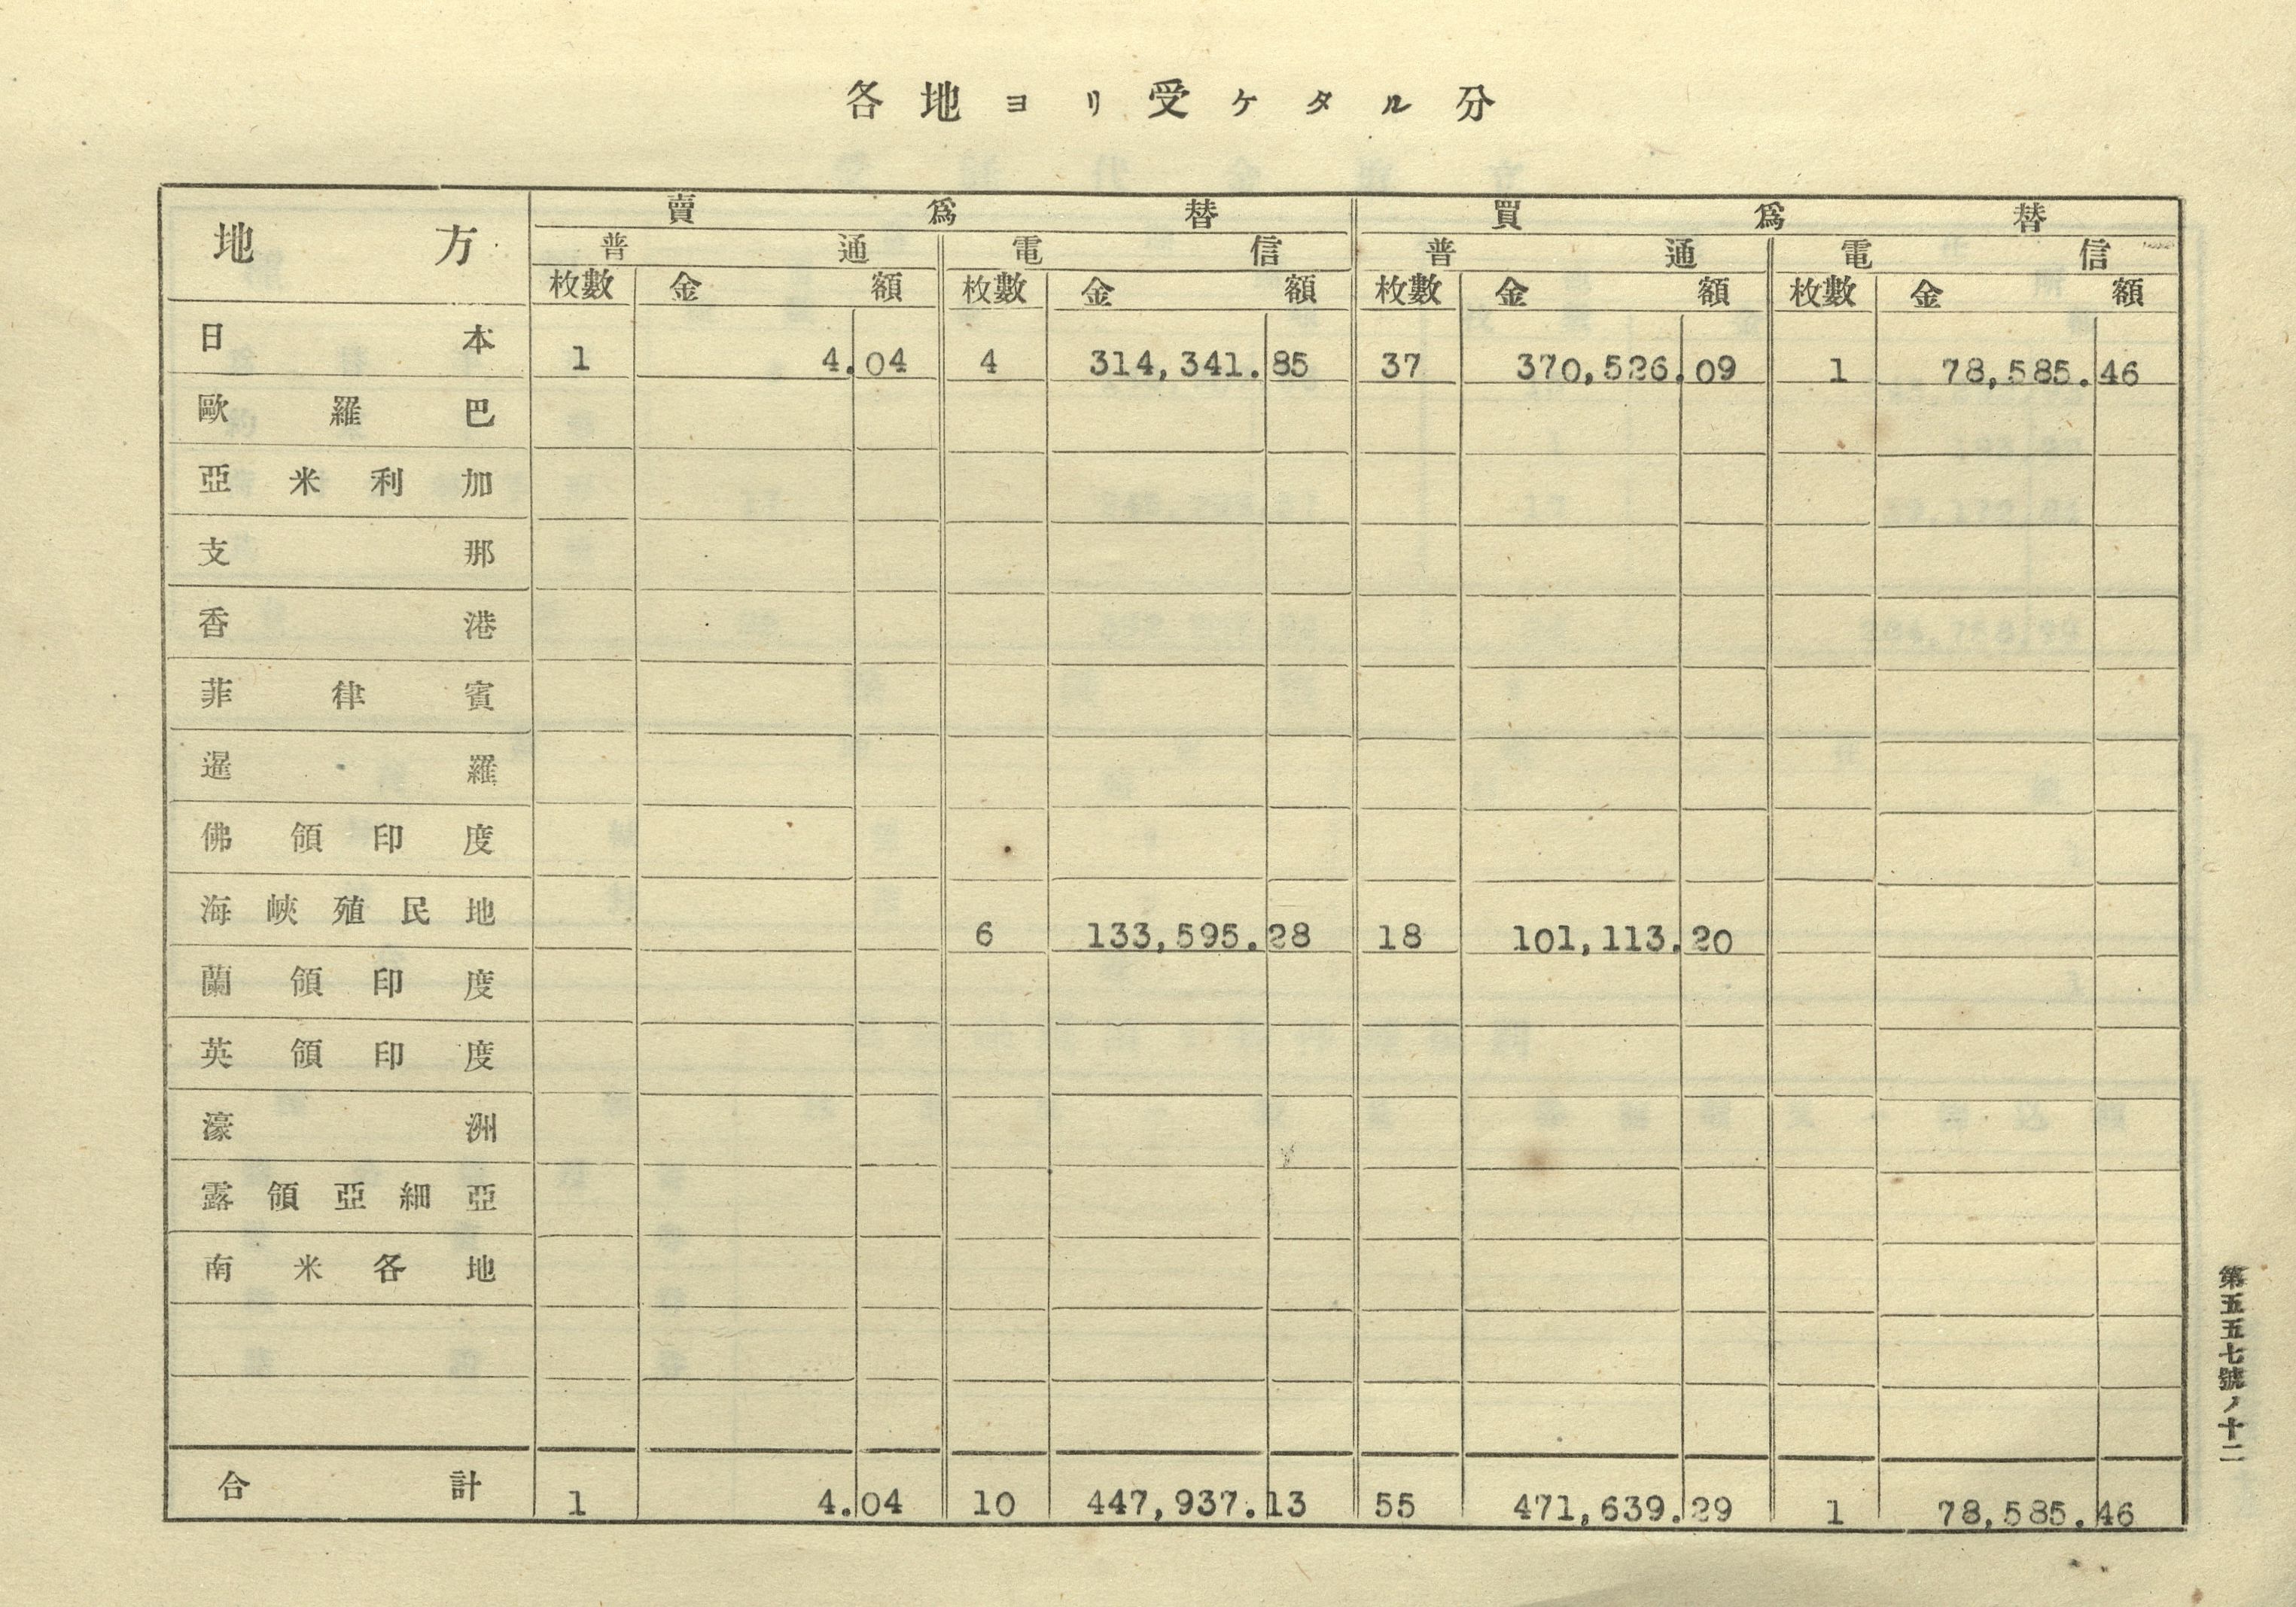 各地ヨリ受ケタル分
地方 賣爲替 買爲替
普通 電信 普通 電信
枚數 金額 枚數 金額 枚數 金額 枚數 金額
日本 1 4.04 4 314,341.85 37 370,526.09 1 78,585.46
歐羅巴
亞米利加
支那
香港
菲律賓
暹羅
佛領印度
海峽殖民地 6 133,595.28 18 101,113.20
蘭領印度
英領印度
濠洲
露領亞細亞
南米各地
合計 1 4.04 10 447,937.13 55 471,639.29 1 78,585.46
第五五七號ノ十二